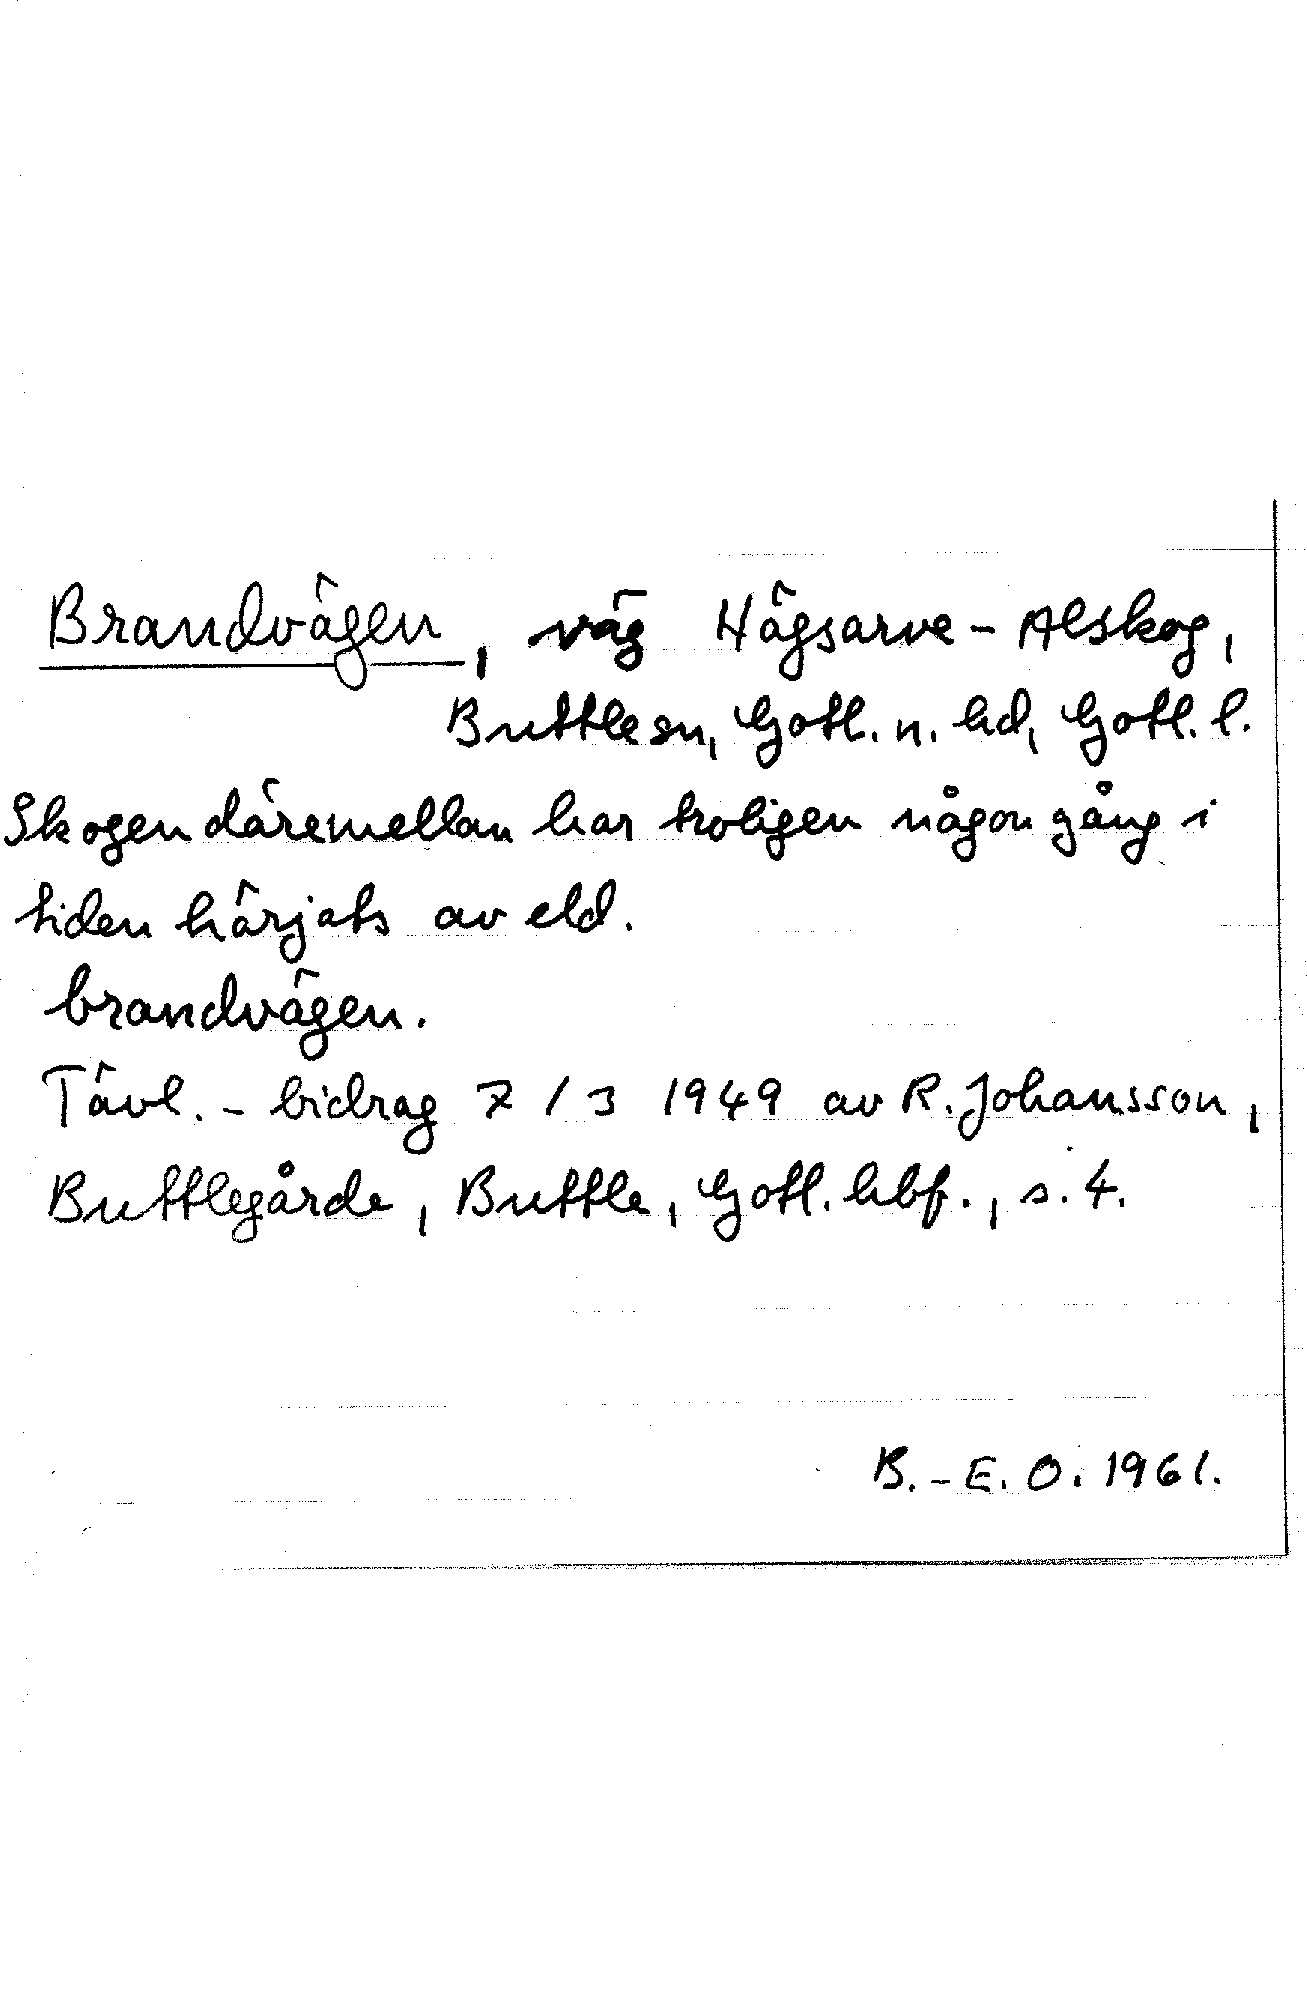 Brandvägen, väg Hägsarve - Alskog,
Buttle sn, Gotl. n. hd, Gotl. l.
Skogen däremellan har troligen någon gång i
tiden härjats av eld.
brandvägen.
Tävl. - bidrag 7/3 1949 av R. Johansson,
Buttlegårde, Buttle, Gotl. hbf., s. 4.
B. - E. O. 1961.